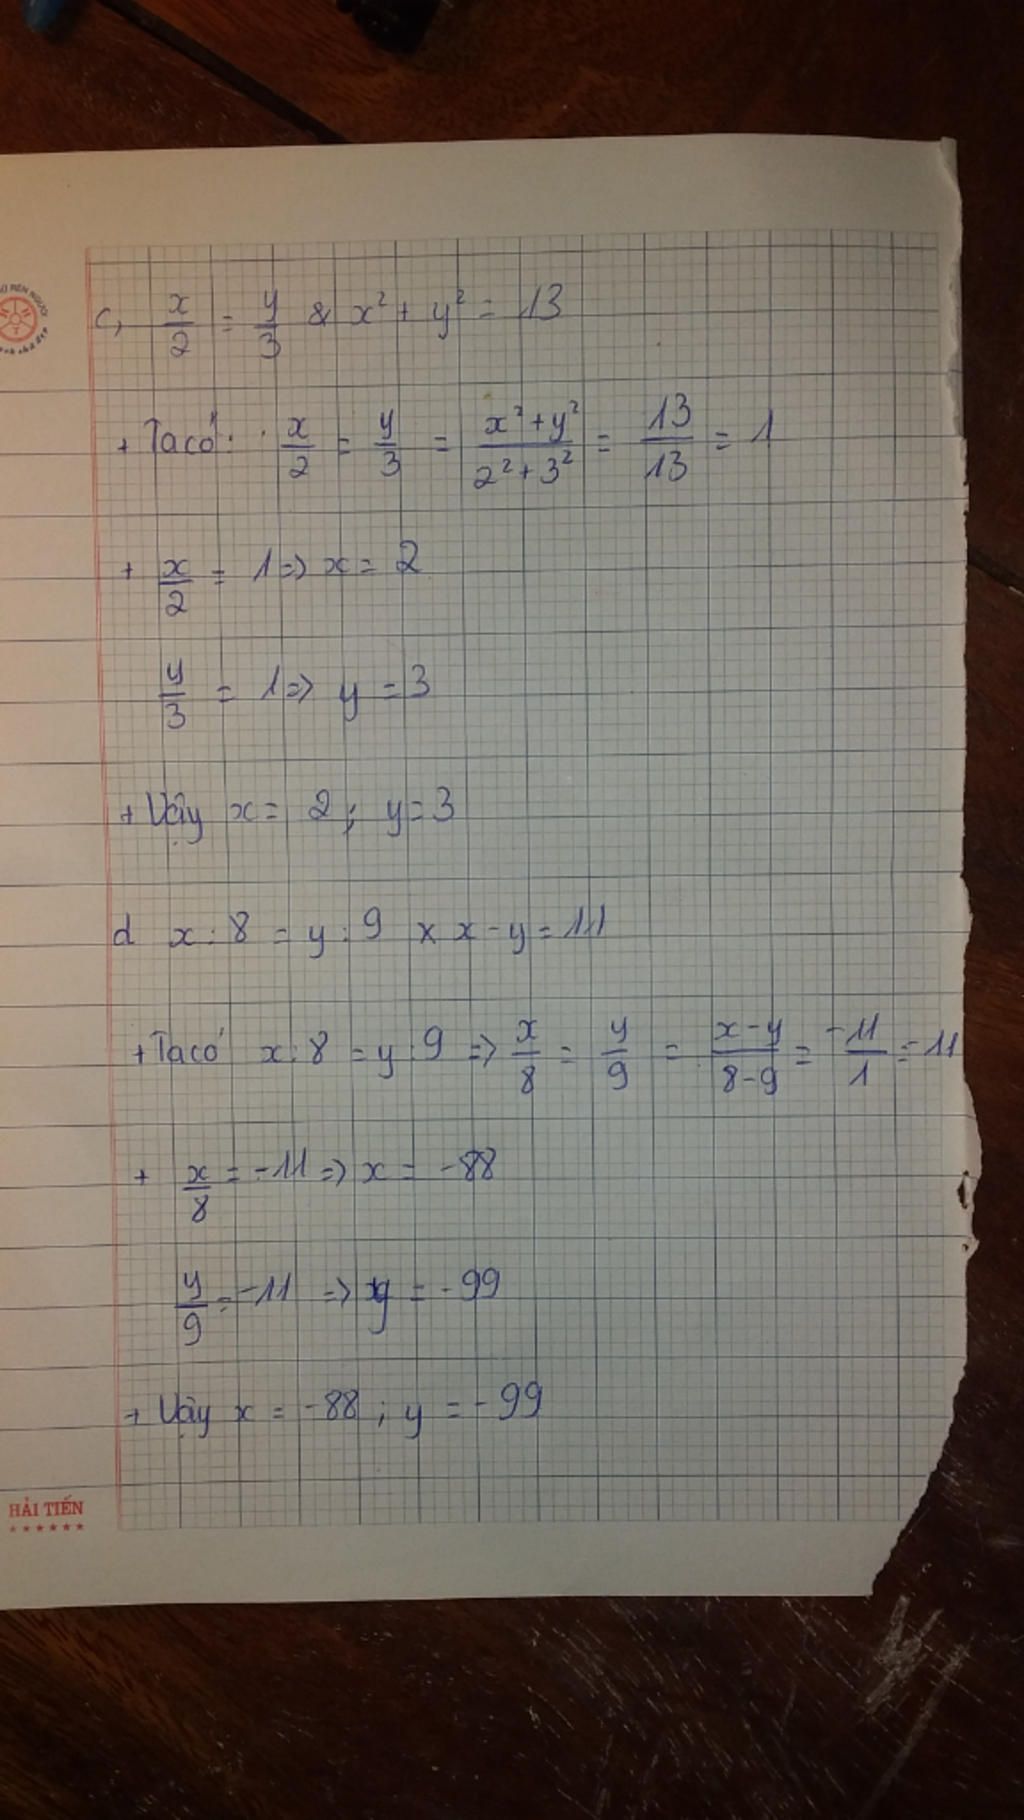 c, x/2 = y/3 & x² + y² = 13
+ Ta có: x/2 = y/3 = (x² + y²)/(2² + 3²) = 13/13 = 1
+ x/2 = 1 => x = 2
y/3 = 1 => y = 3
+ Vậy x = 2; y = 3
d x : 8 = y : 9 x x - y = 11
+ Ta có x : 8 = y : 9 => x/8 = y/9 = (x - y)/(8 - 9) = -11/1 = -11
+ x/8 = -11 => x = -88
y/9 = -11 => y = -99
+ Vậy x = -88 ; y = -99
HẢI TIẾN